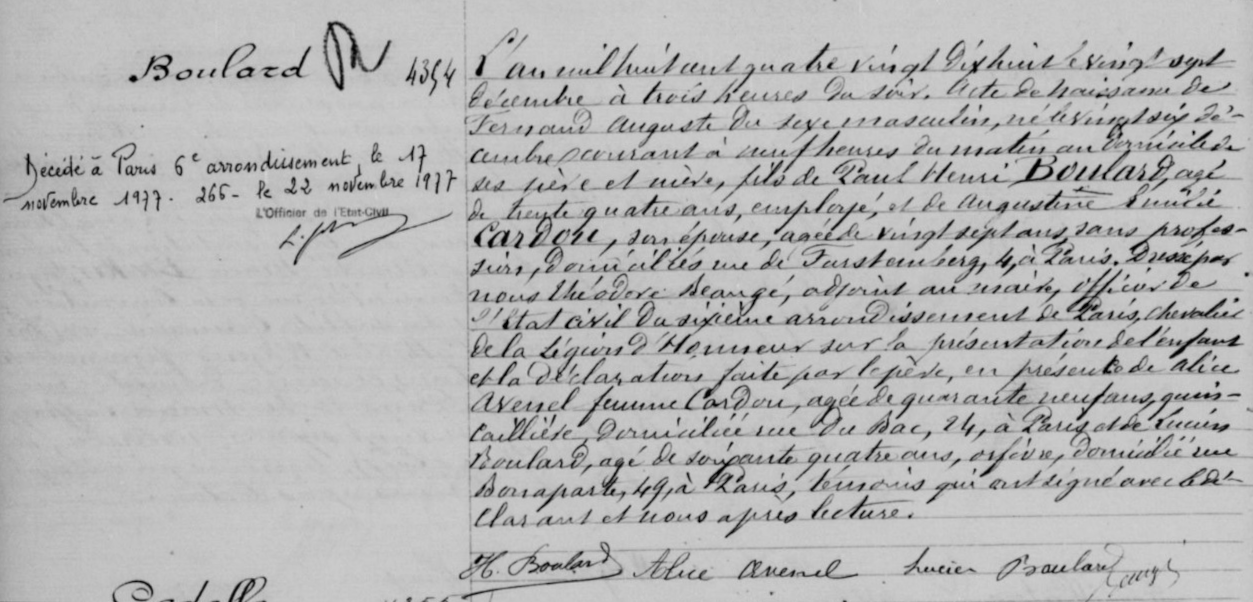 Boulard
4354
Décédé à Paris 6e arrondissement, le 17
novembre 1977. 266 - le 22 novembre 1977
L'Officier de l'Etat-Civil
L'an mil huit cent quatre vingt dix huit le vingt sept
décembre à trois heures du soir. Acte de naissance de
Fernand Auguste du sexe masculin, né le vingt six dé-
cembre courant à neuf heures du matin au domicile de
ses père et mère, fils de Paul Henri Boulard, agé
de trente quatre ans, employé, et de Augustine Emélie
Cardon, son épouse, agée de vingt sept ans, sans profes-
sion, domiciliés rue de Furstemberg, 4, à Paris. Dressé par
nous Théodore Beaugé, adjoint au maire, officier de
l'Etat civil du sixième arrondissement de Paris, chevalier
de la Légion d'Honneur sur la présentation de l'enfant
et la déclaration faite par le père, en présence de Alice
Avenel femme Cardon, agée de quarante neuf ans, quin-
caillière, domiciliée rue du Bac, 24, à Paris et de Lucien
Boulard, agé de soixante quatre ans, orfèvre, domicilié rue
Bonaparte, 49, à Paris, témoins qui ont signé avec le dé-
clarant et nous après lecture.
H. Boulard Alice Avenel Lucien Boulard